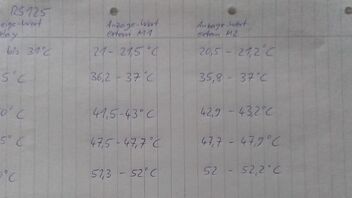 RS125
zeige-Wert Anzeige-Wert Anzeige-Wert
elay extern M1 extern M2
bis 31°C 21 - 21,5 °C 20,5 - 21,2 °C
5 °C 36,2 - 37 °C 35,8 - 37 °C
0°C 41,5 - 43° C 42,9 - 43,2 °C
5°C 47,5 - 47,7 °C 47,7 - 47,9 °C
°C 51,3 - 52° C 52 - 52,2 °C